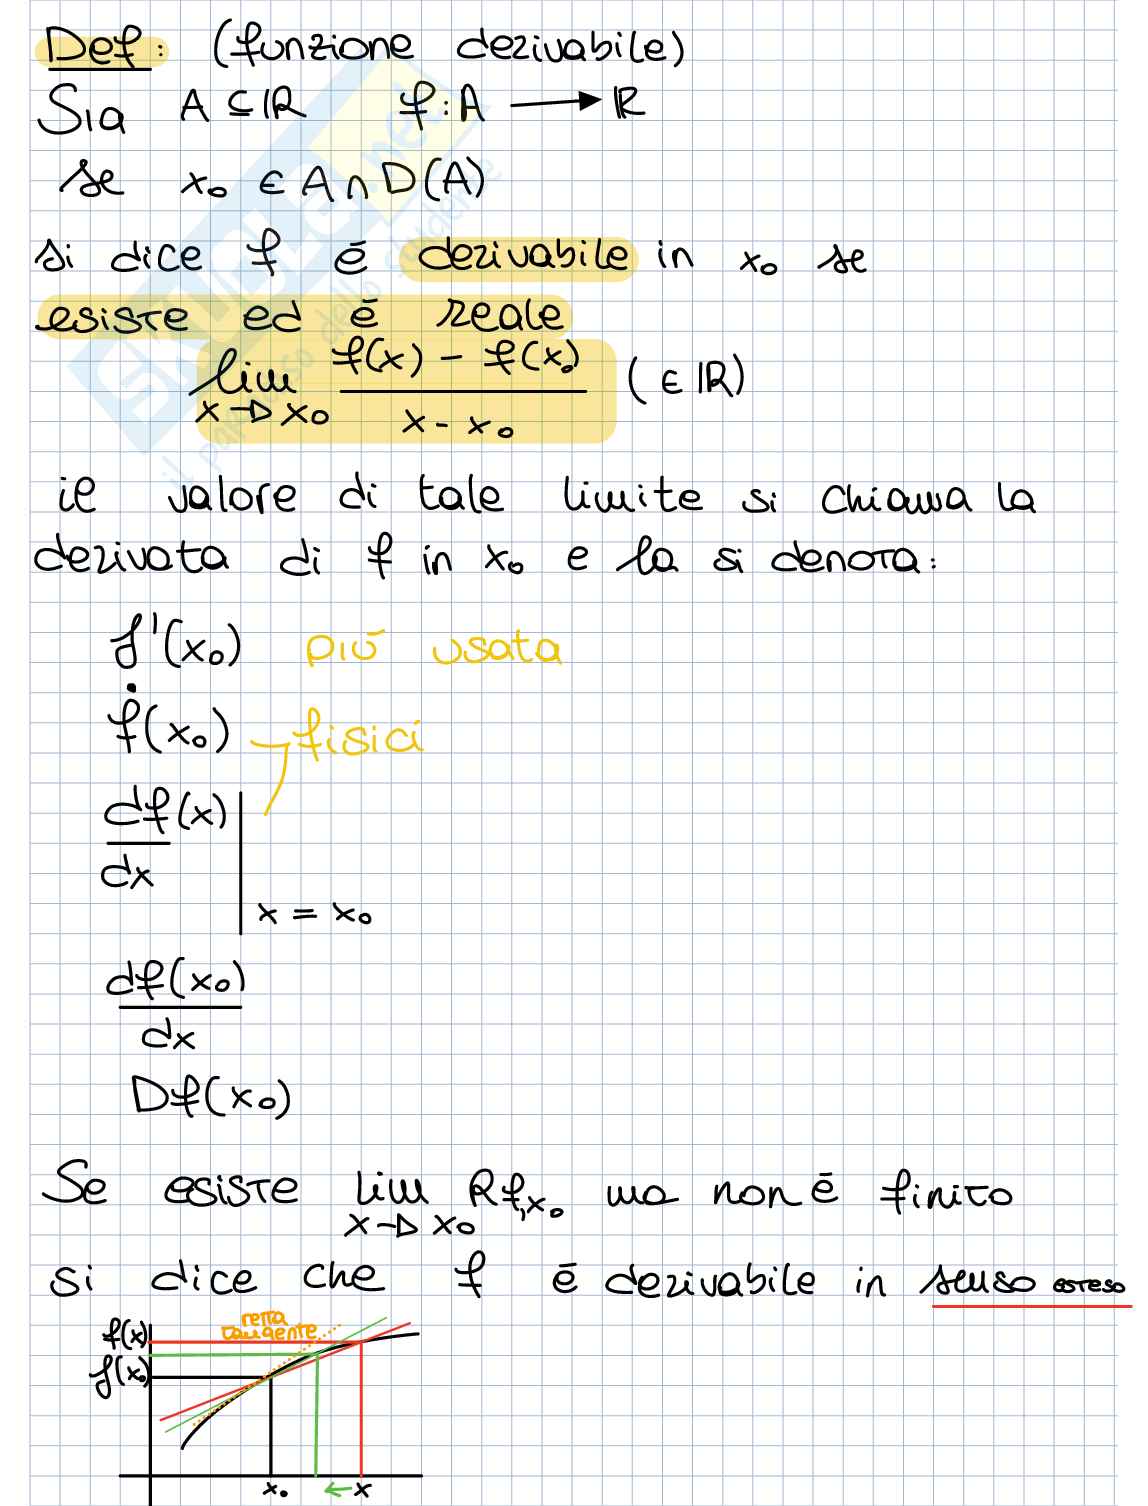 Def: (funzione derivabile)
Sia A ⊆ ℝ f: A → ℝ
se x₀ ∈ A ∩ D(A)
si dice f è derivabile in x₀ se
esiste ed è reale
lim x→x₀ f(x) - f(x₀) / x - x₀ (∈ ℝ)
il valore di tale limite si chiama la
derivata di f in x₀ e la si denota:
f'(x₀) più usata
ḟ(x₀) fisici
df(x)/dx | x = x₀
df(x₀)/dx
Df(x₀)
Se esiste lim x→x₀ Rf,x₀ ma non è finito
si dice che f è derivabile in senso esteso
retta
tangente
f(x)
f(x₀)
x₀ ← x
SKUOLA.net
il paradiso dello studente